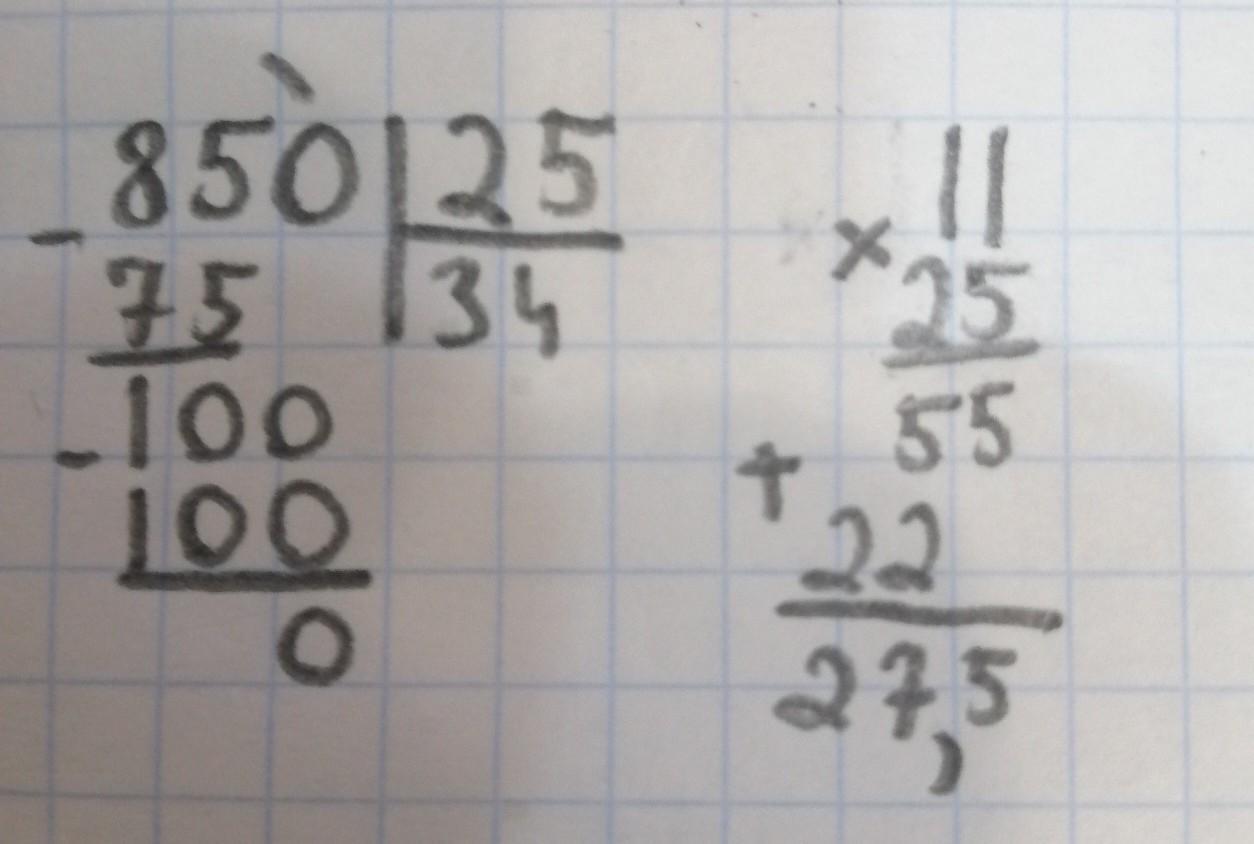 850 | 25
- 75 | 34
- 100
100
0
11
× 25
55
+ 22
27,5